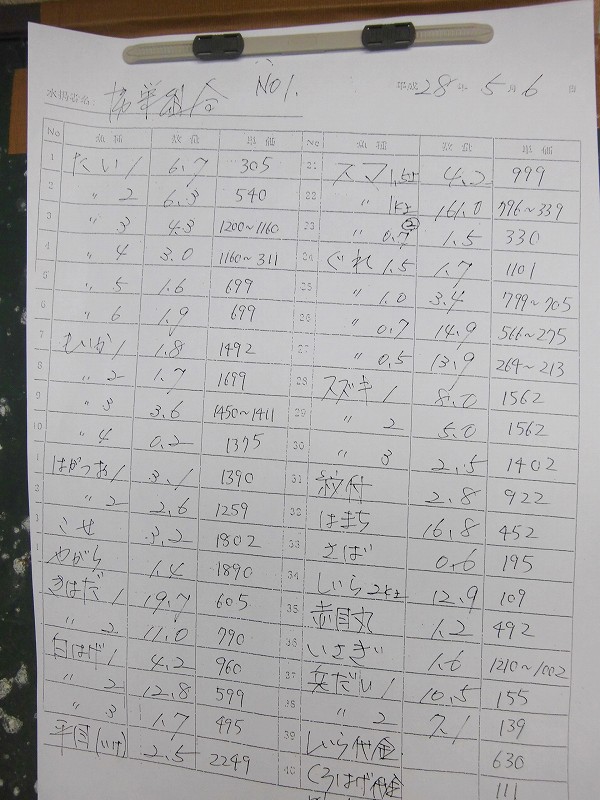 水揚港名 協栄組合 No1. 平成28年5月6日
No 魚種 数量 単価 No 魚種 数量 単価
1 たい1 6.7 305 21 スマ1kg上 4.2 999
2 〃2 6.3 540 22 〃1kg 161.0 796~339
3 〃3 4.3 1200~1160 23 〃0.7② 1.5 330
4 〃4 3.0 1160~311 24 ぐれ1.5 1.7 1101
5 〃5 1.6 699 25 〃1.0 3.4 799~705
6 〃6 1.9 699 26 〃0.7 14.9 566~275
7 もいか1 1.8 1492 27 〃0.5 13.9 264~213
8 〃2 1.7 1699 28 スズキ1 8.0 1562
9 〃3 3.6 1450~1411 29 〃2 5.0 1562
10 〃4 0.2 1375 30 〃3 2.5 1402
1 はがつお1 3.1 1390 31 紋付 2.8 922
2 〃2 2.6 1259 32 はまち 16.8 452
3 こせ 3.2 1802 33 さば 0.6 195
やがら 1.4 1890 34 しいら2kg上 12.9 109
きはだ1 19.7 605 35 赤目丸 1.2 492
〃2 11.0 790 36 いさぎ 1.6 1210~1002
白はげ1 4.2 960 37 兵だい1 10.5 155
〃2 12.8 599 38 〃2 7.1 139
〃3 1.7 495 39 しいら代金 630
平目(いけ) 2.5 2249 40 くろはげ代金 111